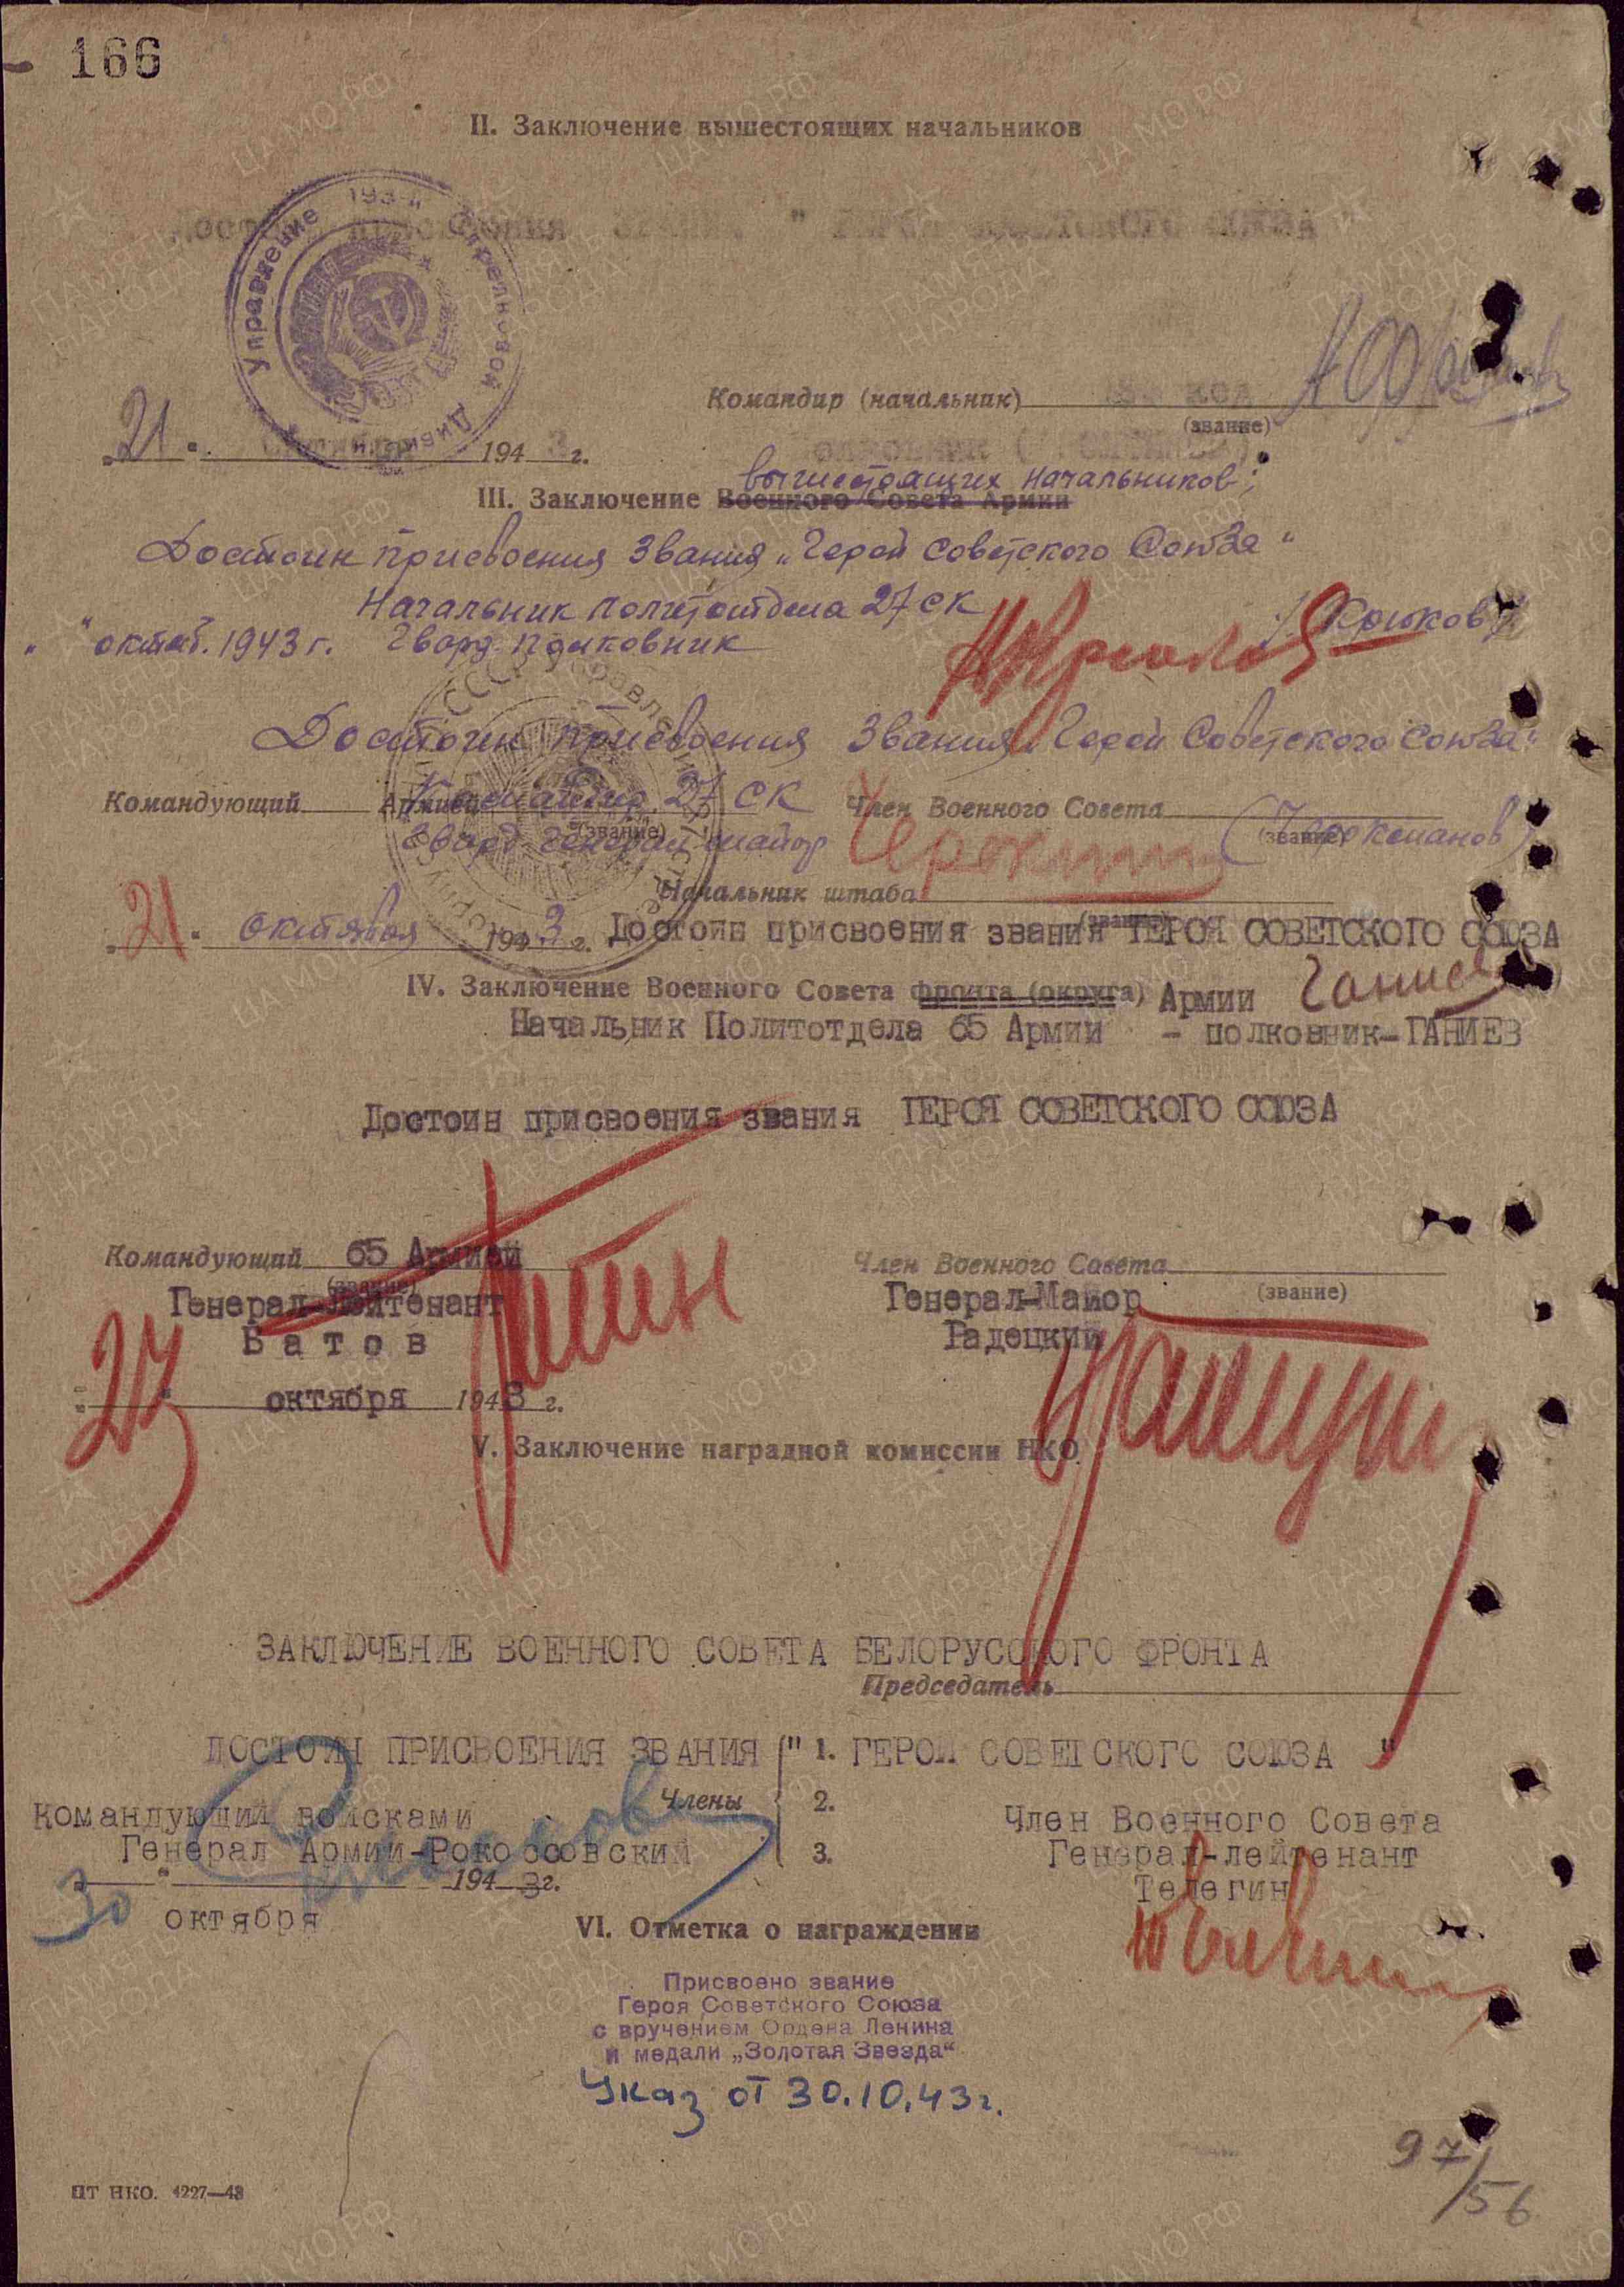 166
II. Заключение вышестоящих начальников
Управление 193-й Стрелковой Дивизии
" ГЕРОЙ СОВЕТСКОГО СОЮЗА "
Командир (начальник)
(звание)
„21" октября 1943 г.
вышестоящих начальников:
III. Заключение Военного Совета Армии
Достоин присвоения звания „Герой Советского Союза"
Начальник политотдела 27 ск
" " октяб. 1943 г. Гвард. полковник /Крюков/
Достоин присвоения звания „Герой Советского Союза"
Командующий Армией Командир 27 ск Член Военного Совета
(звание) (звание)
Гвард. генерал майор (Черокманов)
Начальник штаба
(звание)
„21" октября 1943 г. Достоин присвоения звания ГЕРОЯ СОВЕТСКОГО СОЮЗА
IV. Заключение Военного Совета фронта (округа) Армии Ганиев
Начальник Политотдела 65 Армии - полковник-ГАНИЕВ
Достоин присвоения звания ГЕРОЯ СОВЕТСКОГО СОЮЗА
Командующий 65 Армией Член Военного Совета
(звание) (звание)
Генерал-Лейтенант Генерал-Майор
Батов Радецкий
„27" октября 1943 г.
V. Заключение наградной комиссии НКО
ЗАКЛЮЧЕНИЕ ВОЕННОГО СОВЕТА БЕЛОРУССКОГО ФРОНТА
Председатель
ДОСТОИН ПРИСВОЕНИЯ ЗВАНИЯ " 1. ГЕРОЙ СОВЕТСКОГО СОЮЗА "
Члены 2.
Командующий войсками Член Военного Совета
Генерал Армии-Рокоссовский 3. Генерал-лейтенант
Телегин
„30" 1943 г.
октября
VI. Отметка о награждении
Присвоено звание
Героя Советского Союза
с вручением Ордена Ленина
и медали „Золотая Звезда"
Указ от 30.10.43г.
97/56
ПТ НКО. 4227—43
ПАМЯТЬ НАРОДА
ЦА МО РФ